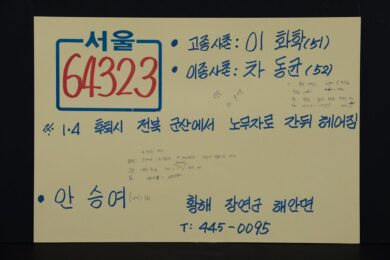 서울
64323
• 고종사촌: 이 화학(51)
• 이종사촌: 차 동균(52)
※ 1·4 후퇴시 전북 군산에서 노무자로 간뒤 헤어짐
• 안 승여
황해 장연군 해안면
T: 445-0095